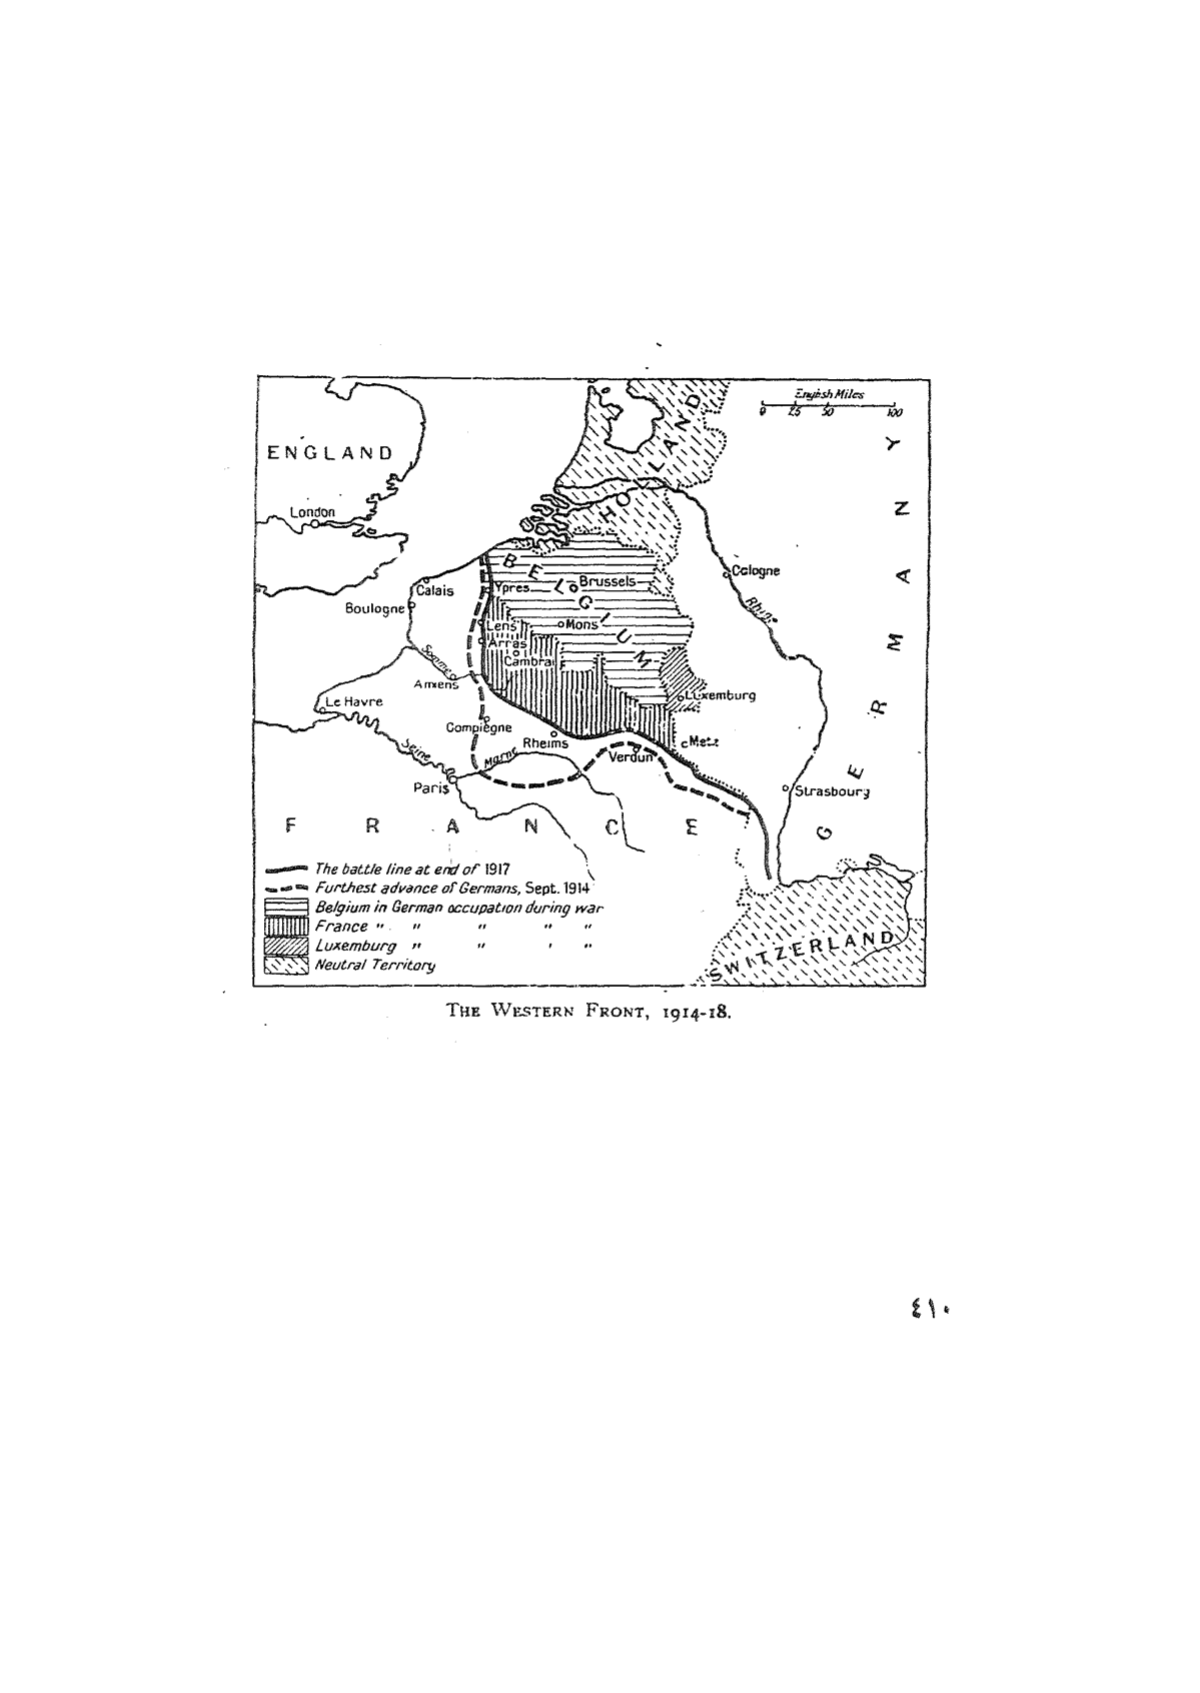 English Miles
0 25 50 100
ENGLAND
HOLLAND
GERMANY
London
BELGIUM
Cologne
Calais
Ypres
Brussels
Boulogne
Rhine
Lens
Mons
Arras
Somme
Cambrai
Amiens
Luxemburg
Le Havre
Compiègne
Rheims
Metz
Seine
Marne
Verdun
Paris
Strasbourg
FRANCE
The battle line at end of 1917
Furthest advance of Germans, Sept. 1914
Belgium in German occupation during war
France " " " " "
Luxemburg " " ' "
Neutral Territory
SWITZERLAND
THE WESTERN FRONT, 1914-18.
٤١٠